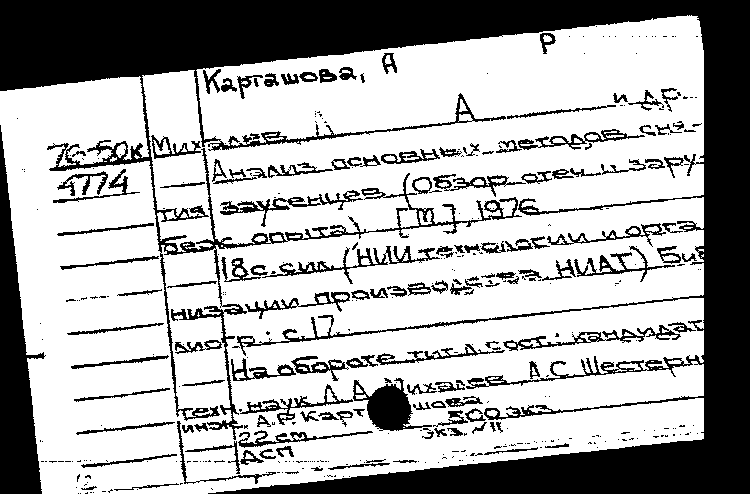 Карташова, А Р
76-50к Михалев Л А и др.
4774 Анализ основных методов сня-
тия заусенцев (Обзор отеч и зару-
беж опыта). [М], 1976
18с. сил. (НИИ технологии и орга
низации производства НИАТ) Биб
лиогр.: с. 17.
На обороте тит. л. сост.: кандидат
техн. наук Л А Михалев, Л.С. Шестерн
инж. А.Р. Карташова
22 см. 500 экз.
ДСП экз. №11
12